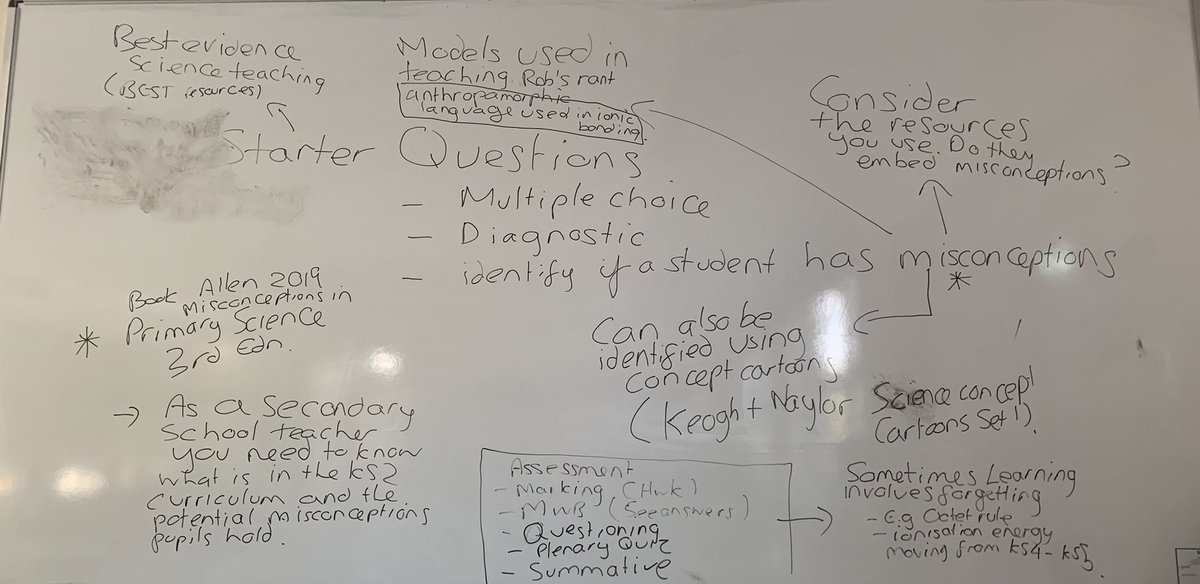 Best evidence
Science teaching
(BEST resources)
Models used in
teaching. Rob's rant
anthropamorphic
language used in ionic
bonding.
Consider
the resources
you use. Do they
embed misconceptions?
Starter Questions
- Multiple choice
- Diagnostic
- identify if a student has misconceptions
*
Book Allen 2019
Misconceptions in
* Primary Science
3rd Edn.
Can also be
identified using
concept cartoons
(Keogh + Naylor Science concept
Cartoons Set 1).
→ As a secondary
school teacher
you need to know
what is in the KS2
curriculum and the
potential misconceptions
pupils hold.
Assessment
- Marking (Hwk)
- MWB (See answers)
- Questioning
- Plenary Quiz
- Summative
Sometimes Learning
involves forgetting
- E.g Octet rule
- ionisation energy
moving from KS4-KS5